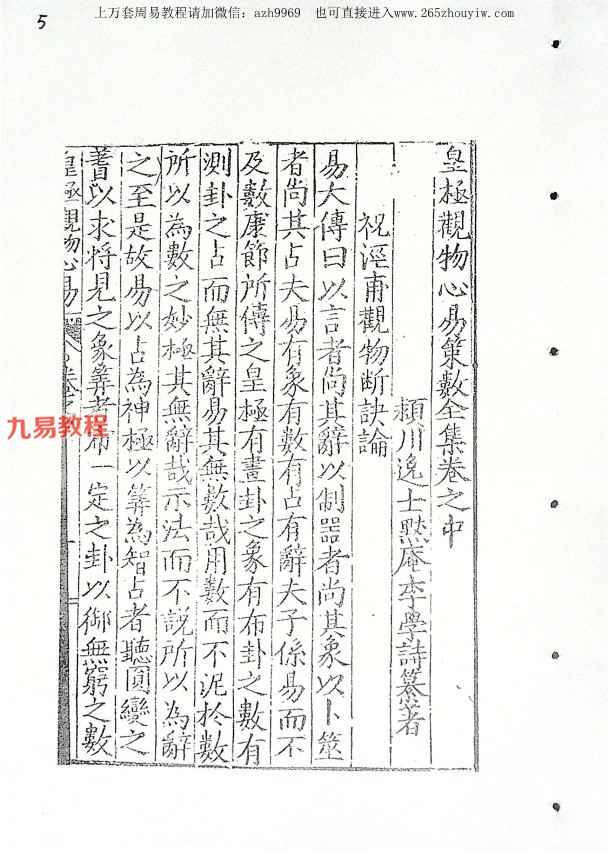 5
上万套周易教程请加微信：azh9969 也可直接进入www.265zhouyiw.com
皇極觀物心易策數全集卷之中
頴川逸士黙庵李學詩纂著
祝涇甫觀物断訣論
易大傳曰以言者尚其辭以制噐者尚其象以卜筮
者尚其占夫易有象有數有占有辭夫子係易而不
及數康節所傳之皇極有畫卦之象有布卦之數有
測卦之占而無其辭易其無數哉用數而不泥於數
所以為數之妙極其無辭哉示法而不說所以為辭
之至是故易以占為神極以筭為智占者聽圓變之
蓍以求将見之象筭者布一定之卦以御無窮之數
皇極觀物心易
九易教程